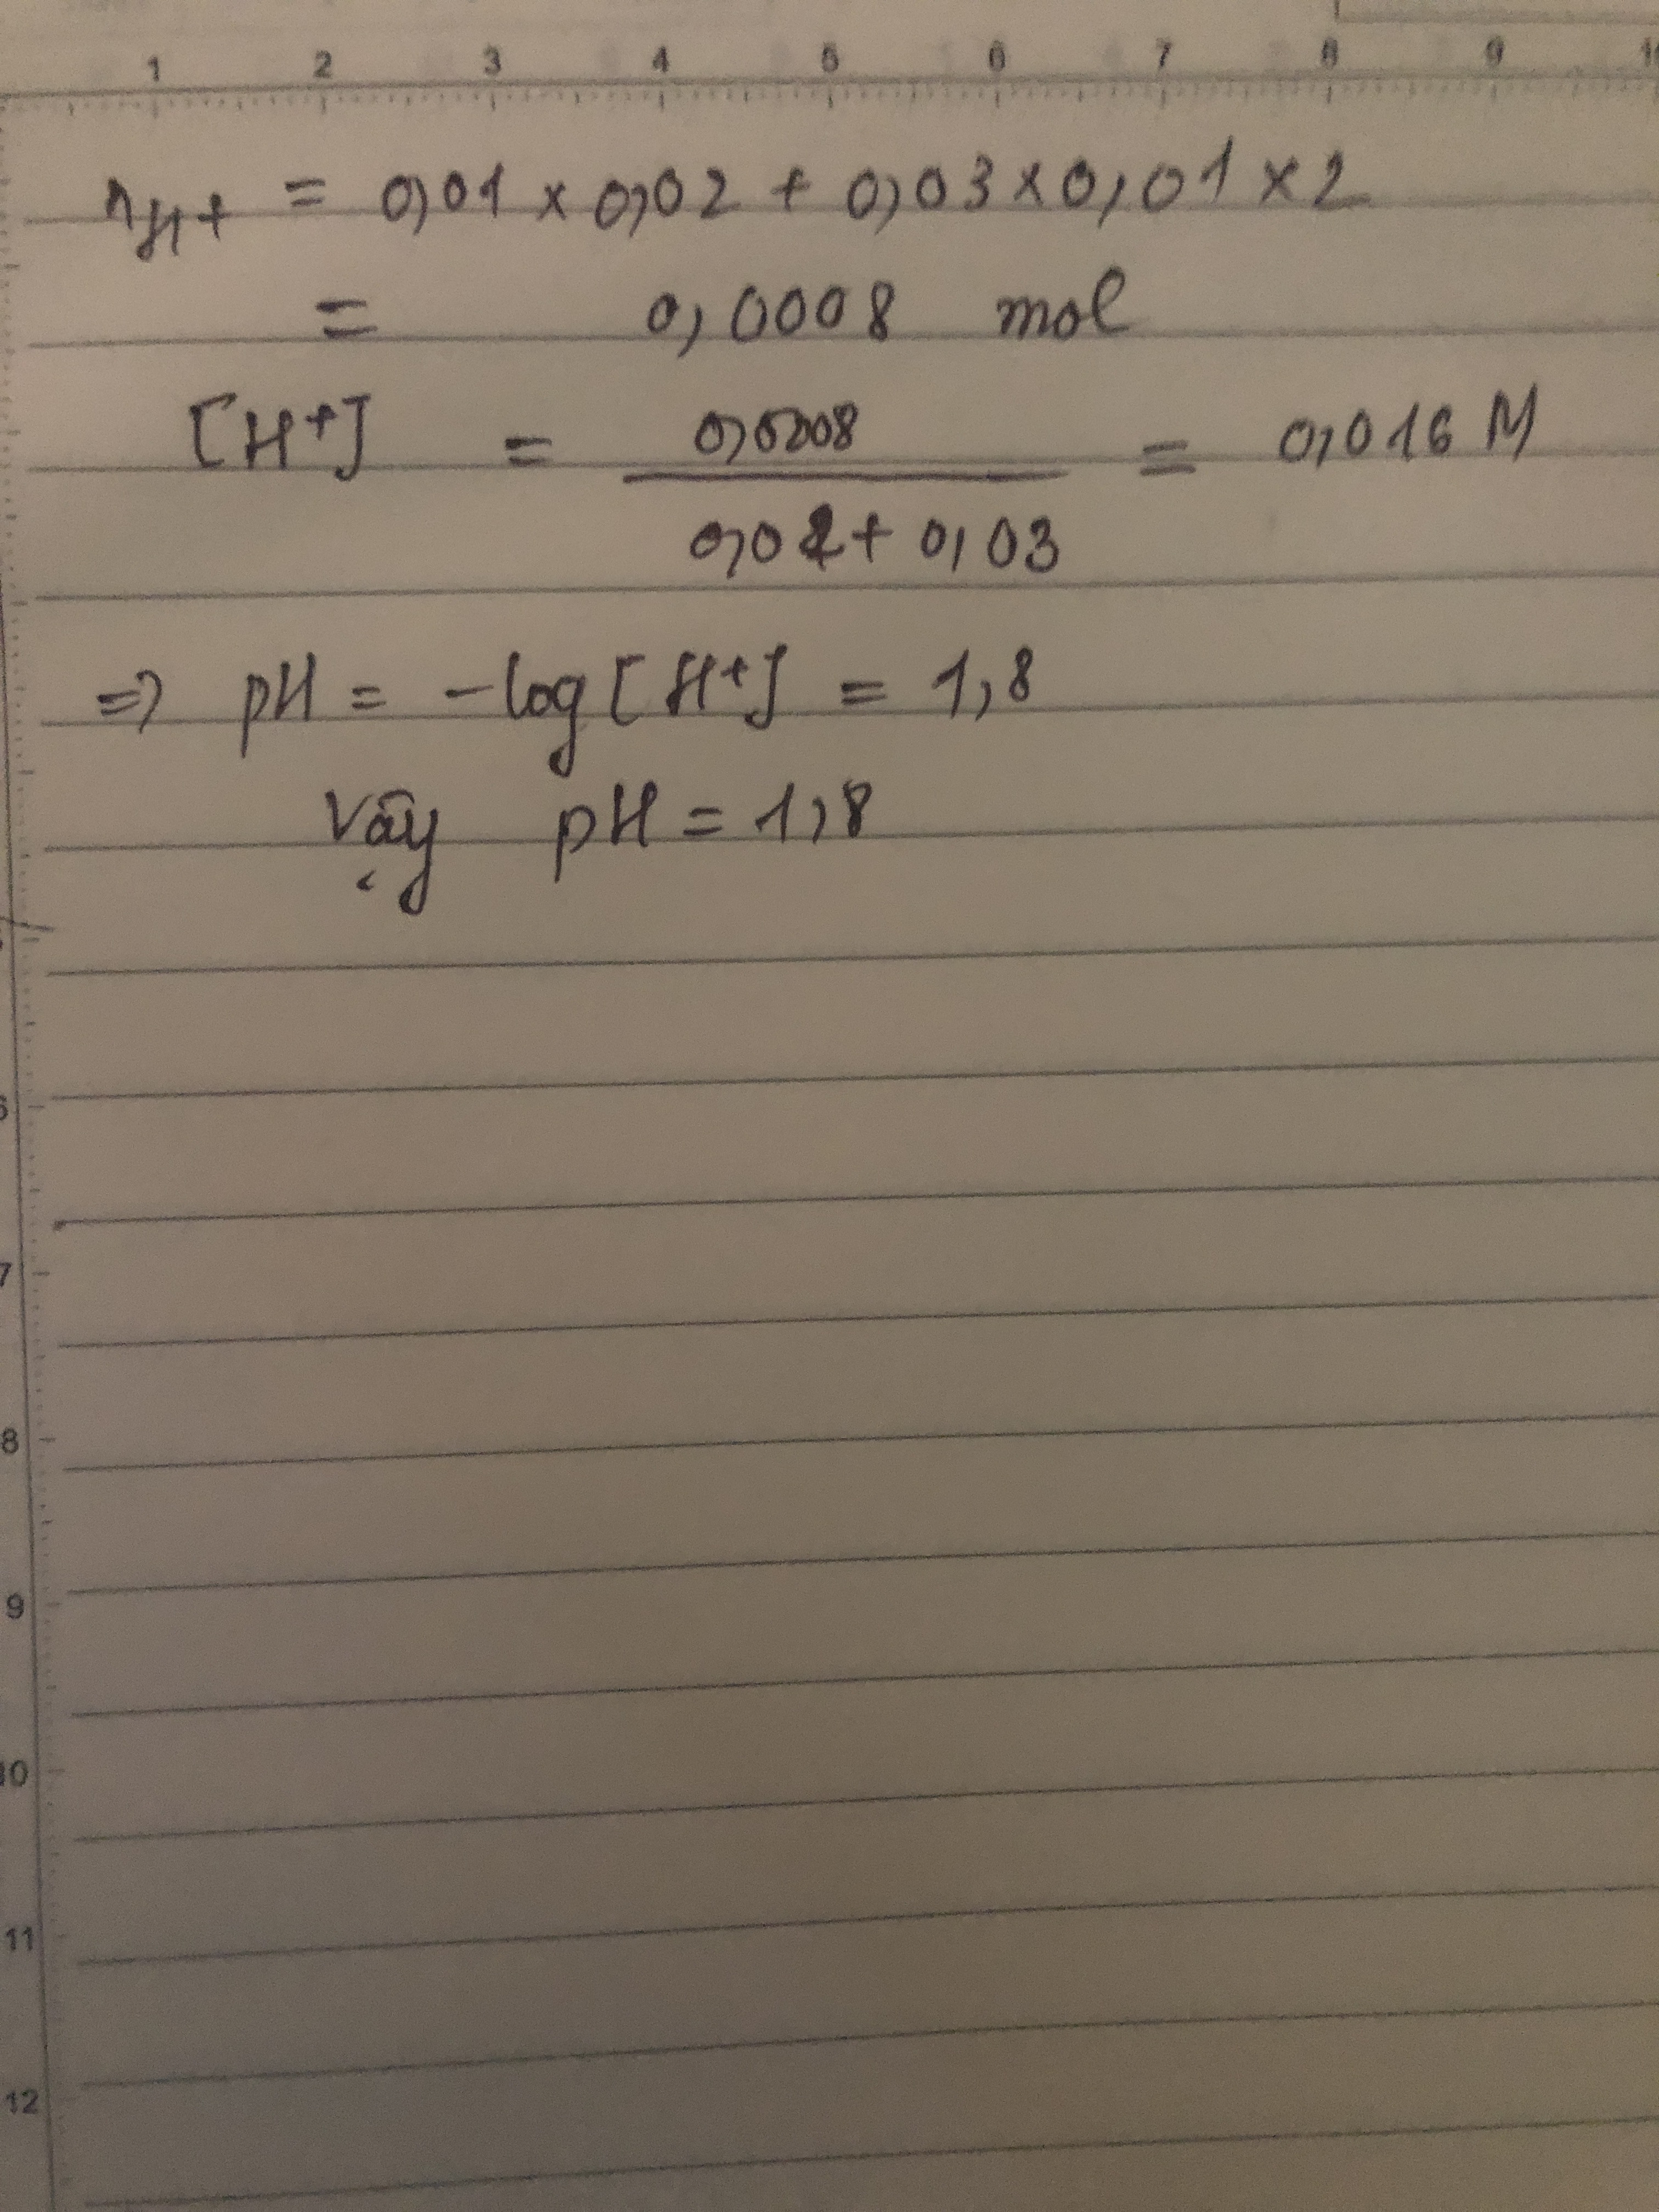 1 2 3 4 5 6 7 8 9 10
nH+ = 0,01 x 0,02 + 0,03 x 0,01 x 2
= 0,0008 mol
[H+] = 0,0008 / 0,02 + 0,03 = 0,016 M
=> pH = -log [H+] = 1,8
Vậy pH = 1,8
6
7
8
9
10
11
12